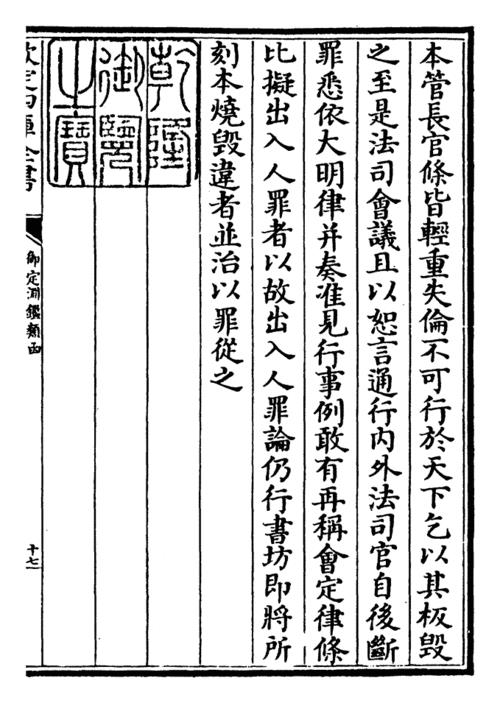 本管長官條皆輕重失倫不可行於天下乞以其板毀
之至是法司會議且以恕言通行内外法司官自後斷
罪悉依大明律并奏准見行事例敢有再稱會定律條
比擬出入人罪者以故出入人罪論仍行書坊即將所
刻本燒毀違者並治以罪從之
乾隆
御覽
之寶
欽定四庫全書
御定淵鑑類函
十七